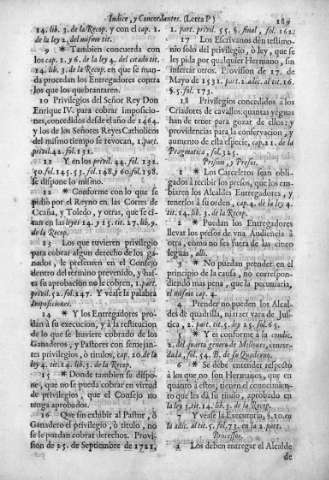 Indice, y Concordantes. (Letra P) 189
14. lib. 3. de la Recop. y con el cap. 1.
de la ley 2. del mismo tit.
9 * Tambien concuerda con
los cap. 1. y 6. de la ley 4. del citado tit.
14. lib. 3. de la Recop. en que se man-
da procedan los Entregadores contra
los que los quebrantaren.
10 Privilegios del Señor Rey Don
Enrique IV. para cobrar imposicio-
nes, concedidos desde el año de 1464.
y los de los Señores Reyes Catholicos
del mismo tiempo se revocan, 1. part.
privil. 42. fol. 131.
11 Y en los privil. 44. fol. 131.
50. fol. 145. 53. fol. 148. y 60. fol. 198.
se dispone lo mismo.
12 * Conforme con lo que se
pidio por el Reyno en las Cortes de
Ocaña, y Toledo, y otras, que se ci-
tan en las leyes 14. y 15. tit. 27. lib. 9.
de la Recop.
13 Los que tuvieren privilegio
para cobrar algun derecho de los ga-
nados, le presenten en el Consejo
dentro del termino prevenido, y has-
ta su aprobacion no le cobren, 1. part.
privil. 52. fol. 147. Y vease la palabra
Imposiciones.
14 * Y los Entregadores pro-
dan à su execucion, y à la restitucion
de lo que se huviere cobrado de los
Ganaderos, y Pastores con semejan-
tes privilegios, ò titulos, cap. 10. de la
ley 4. tit. 14. lib. 3. de la Recop.
15 * Donde tambien se dispo-
ne, que no se pueda cobrar en virtud
de privilegio, que el Consejo no
tenga aprobados.
16 Que sin exhibir al Pastor, ò
Ganadero el privilegio, ò titulo, no
se le puedan cobrar derechos. Provi-
sion de 25. de Septiembre de 1721,
1. part. privil. 55. §. final, fol. 162.
17 Los Escrivanos den testimo-
nio solo del privilegio, ò ley, que se
les pida por qualquier Hermano, sin
insertar otros. Provision de 17. de
Mayo de 1531. part. 2. adic. al tit. 16.
§. 5. fol. 173.
18 Privilegios concedidos à los
Criadores de cavallos, quantas yeguas
han de tener para gozar de ellos; y
providencias para la conservacion, y
aumento de esta especie, cap. 21. de la
Pragmatica, fol. 325.
Prision, y Presos.
1 * Los Carceleros sean obli-
gados à recibir los presos, que les em-
biaren los Alcaldes Entregadores, y
tenerlos à su orden, cap. 4. de la ley 4.
tit. 14. lib. 3. de la Recop.
2 * Puedan los Entregadores
llevar los presos de una Audiencia à
otra, como no sea fuera de las cinco
leguas, alli.
3 * No puedan prender, en el
principio de la causa, no correspon-
diendo mas pena, que la pecuniaria,
el mismo cap. 4.
4 Prender no pueden los Alcal-
des de quadrilla, ni traer vara de Jus-
ticia, 2. part. tit. 5. ley 25. fol. 65.
5 * Y es conforme à la condic.
1. del quarto genero de Millones, conce-
lada, fol. 54. B. de su Quaderno.
6 * Se debe entender respecto
à los que no son Hermanos, que en
quanto à estos, tienen el conocimien-
to que les dà su titulo, aprobado en
la ley 5. tit. 14. lib. 3. de la Recop.
7 Y vease la Executoria, §. 10. en
la adic. al tit. 5. fol. 73. en la 2. part.
Processos.
1 Los deben entregar el Alcalde
de